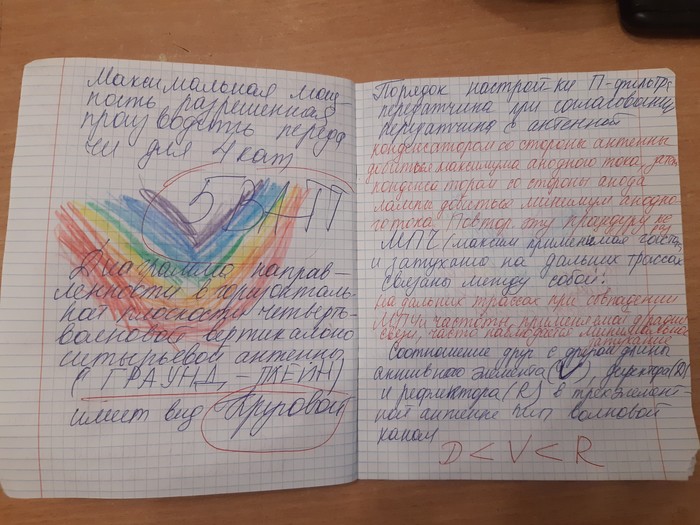 Максимальная мощ-
ность разрешенная
производить переда
чи для 4 кат
5 ВАТТ
Диаграмма направ-
ленности в горизонталь-
ной плоскости четверть-
волновой вертикально
штырьевой антенны
(ГРАУНД-ПЛЕЙН)
имеет вид Круговой
Порядок настройки П-фильтра
передатчика при согласовании
передатчика с антенной
конденсатором со стороны антенны
добиться максимума анодного тока, затем
конденсатором со стороны анода
лампы добиться минимум анодно-
го тока. Повтор. эту процедуру
МПЧ (максим применимая частота)
и затухание на дальних трассах
связаны между собой:
на дальних трассах при совпадении
МПЧ и частоты, применяемая
связи, часто наблюдается минимальное
затухание
Соотношение друг с другом длины
активного элемента (V), директора (D)
и рефлектора (R) в трехэлемент-
ной антенне тип волновой
канал
D < V < R